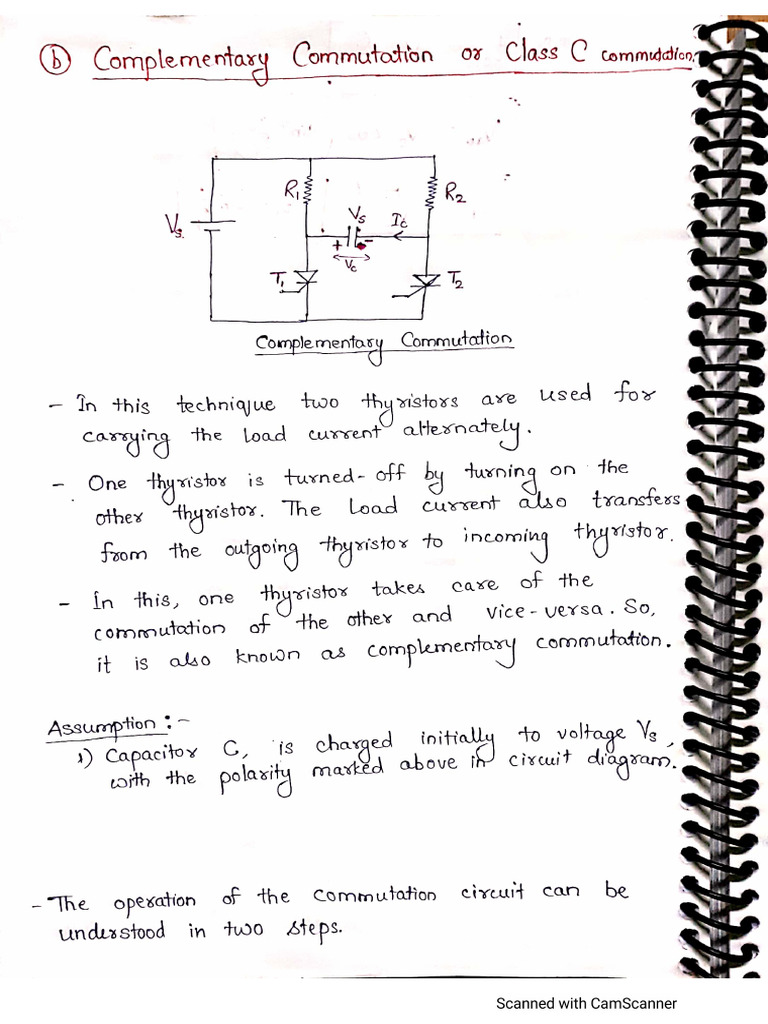 (b) Complementary Commutation or Class C commutation.
R1
R2
Vs
Vs
Ic
+
-
Vc
T1
T2
Complementary Commutation
- In this technique two thyristors are used for
carrying the load current alternately.
- One thyristor is turned-off by turning on the
other thyristor. The load current also transfers
from the outgoing thyristor to incoming thyristor.
- In this, one thyristor takes care of the
commutation of the other and vice-versa. So,
it is also known as complementary commutation.
Assumption :-
1) Capacitor C, is charged initially to voltage Vs,
with the polarity marked above in circuit diagram.
- The operation of the commutation circuit can be
understood in two steps.
Scanned with CamScanner